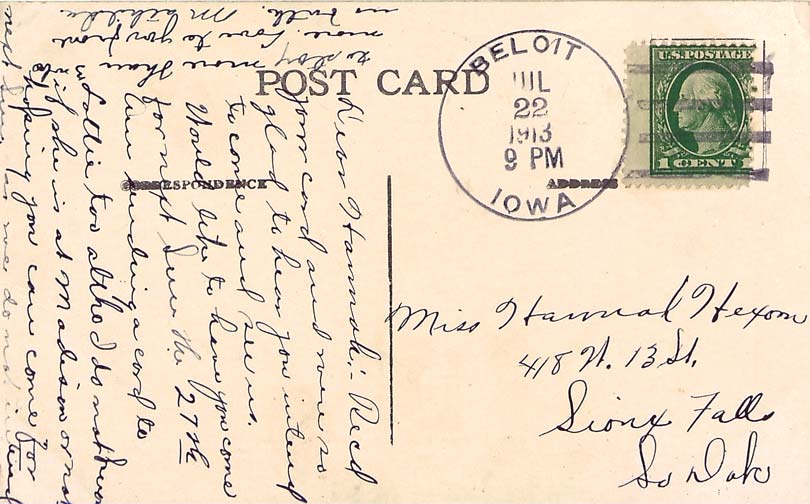 POST CARD
CORRESPONDENCE
ADDRESS
BELOIT
JUL
22
1913
9 PM
IOWA
U.S. POSTAGE
1 CENT
Miss Hannah Hexom
418 N. 13 St.
Sioux Falls
So Dak
Dear Hannah:- Recd
your card and were so
glad to hear you intend
to come and see us.
Would like to have you come
for next Sun. the 27th
Am sending a card to
Lottie too altho I do not know
if she is at Madison or not
hoping you can come for
next Sun as we do not intend
to stay more than
more. Love to you from
us both. Mathilda